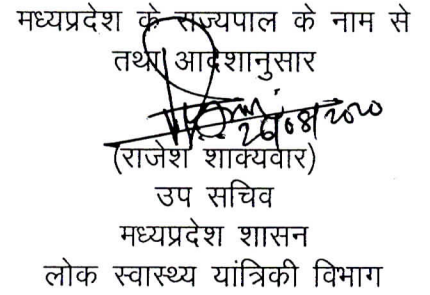 मध्यप्रदेश के राज्यपाल के नाम से
तथा आदेशानुसार
26/08/2020
(राजेश शाक्यवार)
उप सचिव
मध्यप्रदेश शासन
लोक स्वास्थ्य यांत्रिकी विभाग